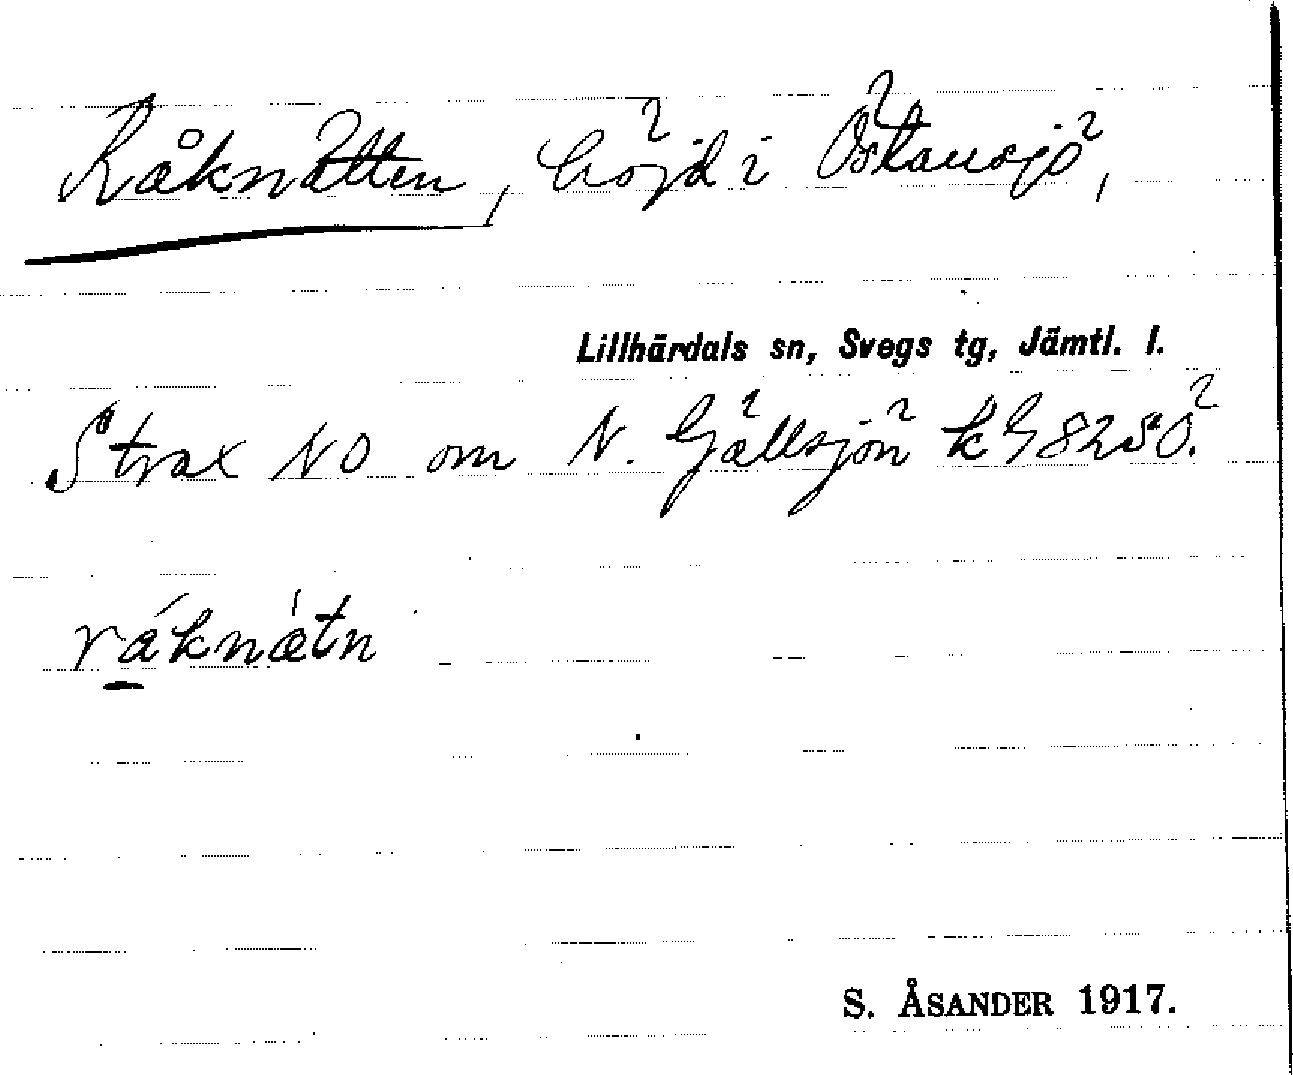 Råknätten, höjd i Östansjö,
Lillhärdals sn, Svegs tg, Jämtl. l.
Strax NO om N. Gällsjön k G 82 s Ö.
råknætn
S. ÅSANDER 1917.